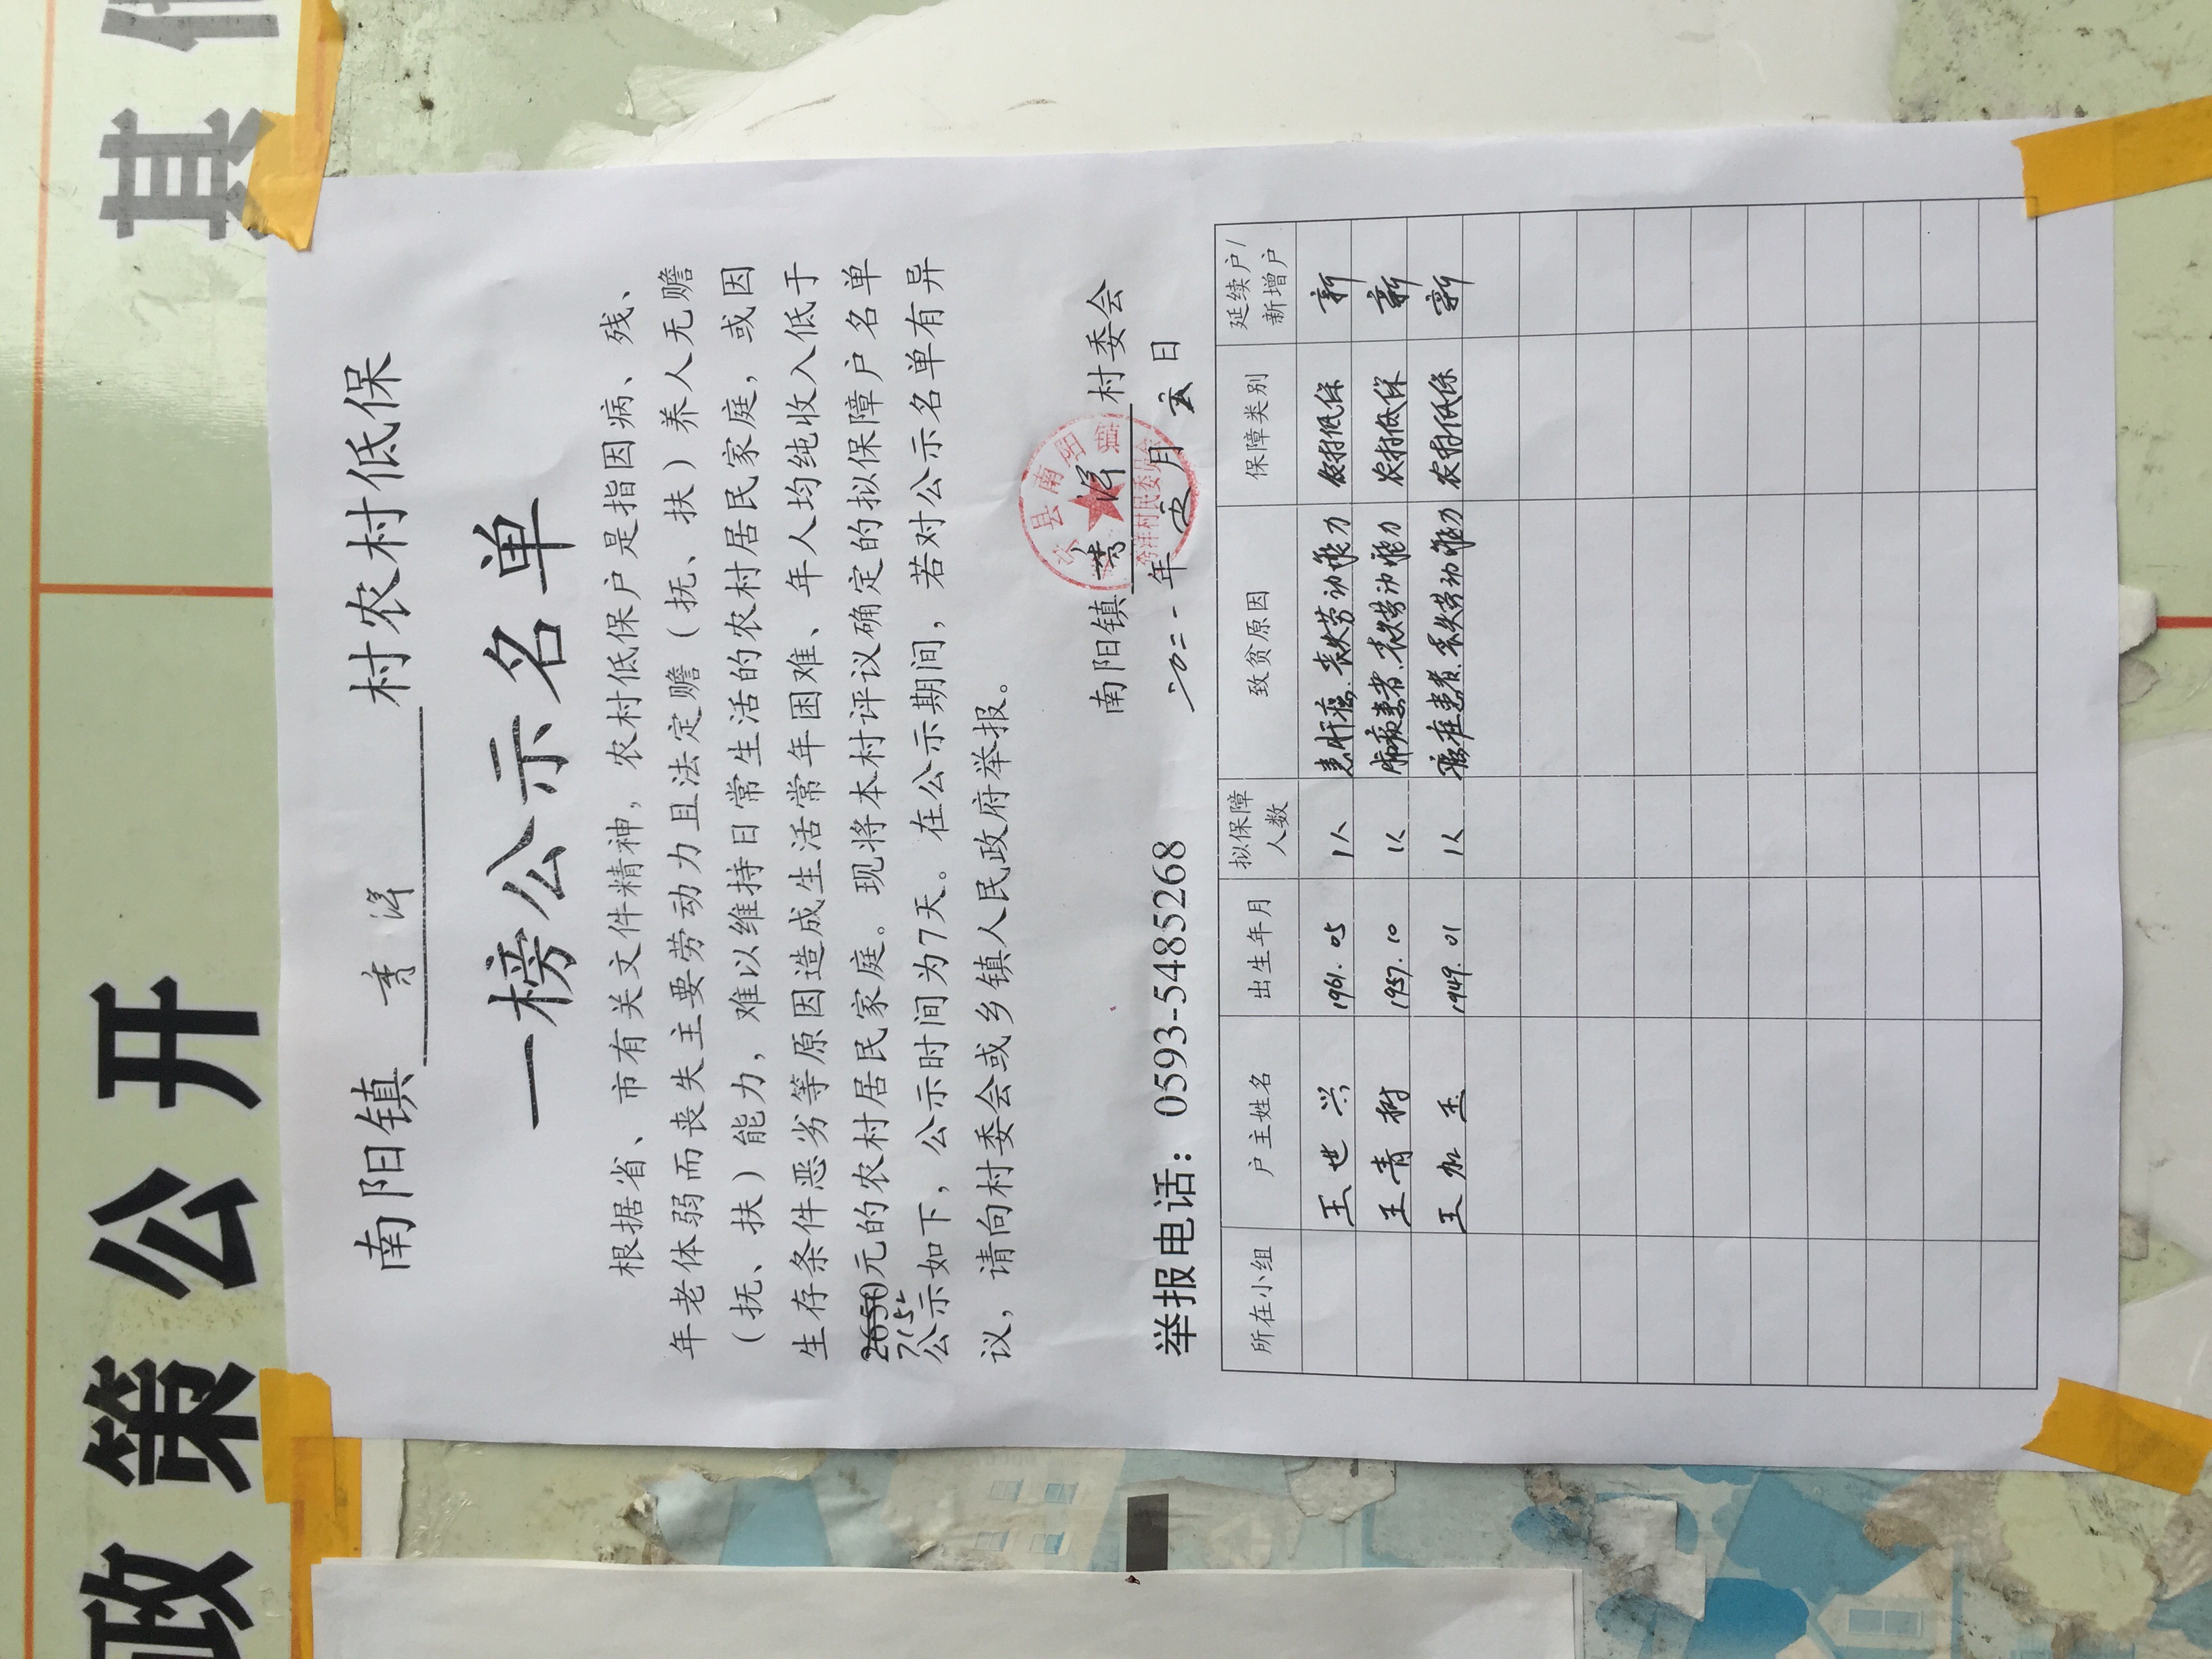 政策公开
其他
南阳镇 秀洋 村农村低保
一榜公示名单
根据省、市有关文件精神，农村低保户是指因病、残、
年老体弱而丧失主要劳动力且法定赡（抚、扶）养人无赡
（抚、扶）能力，难以维持日常生活的农村居民家庭，或因
生存条件恶劣等原因造成生活常年困难、年人均纯收入低于
2650元的农村居民家庭。现将本村评议确定的拟保障户名单
7152
公示如下，公示时间为7天。在公示期间，若对公示名单有异
议，请向村委会或乡镇人民政府举报。
南阳镇 秀洋 村委会
二0二一年 月 日
举报电话：0593-5485268
所在小组 户主姓名 出生年月 拟保障人数 致贫原因 保障类别 延续户/新增户
王世兴 1961.05 1人 患肝癌.丧失劳动能力 农村低保 新
王青树 1957.10 1人 肺癌患者.丧失劳动能力 农村低保 新
王加玉 1949.01 1人 癌症患者.丧失劳动能力 农村低保 新